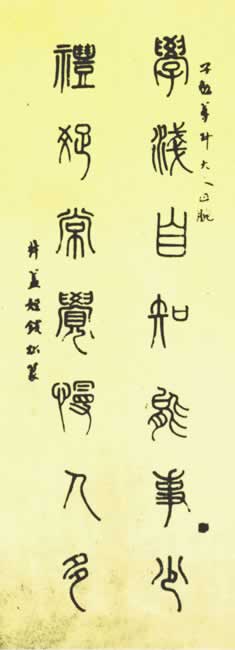 學淺自知能事少
禮疏常覺慢人多
錢松篆